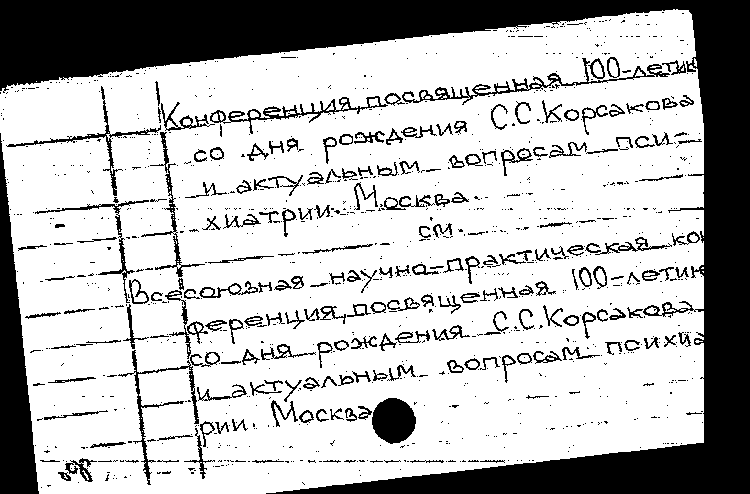 Конференция, посвященная 100-летию
со дня рождения С.С. Корсакова
и актуальным вопросам пси-
хиатрии. Москва.
см.
Всесоюзная научно-практическая кон
ференция, посвященная 100-летию
со дня рождения С.С. Корсакова
и актуальным вопросам психиа
рии. Москва